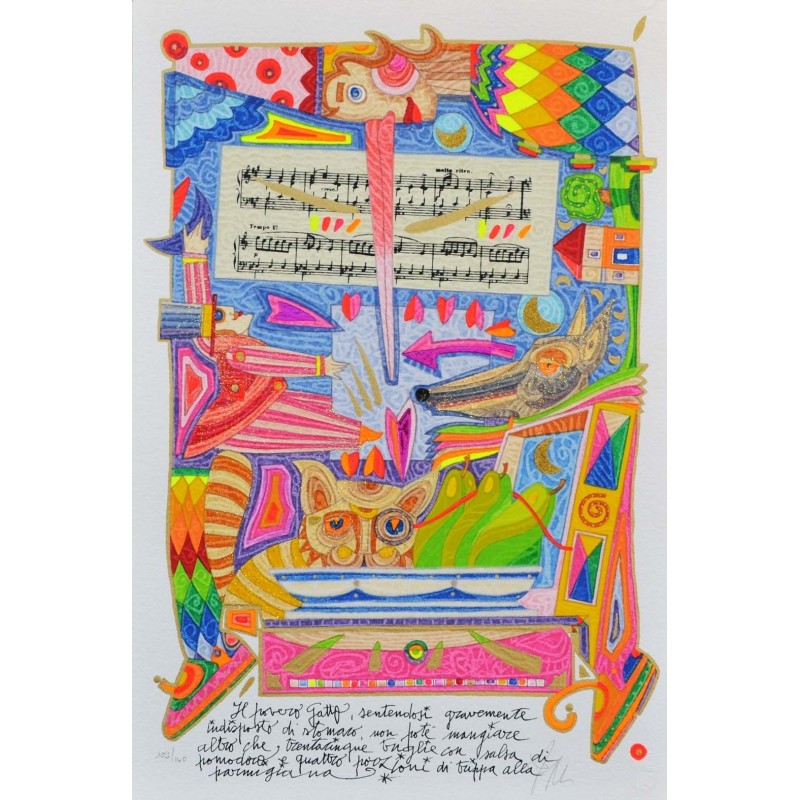 molto riten.
Tempo I
Il povero Gatto, sentendosi gravemente
indisposto di stomaco, non poté mangiare
altro che, trentacinque triglie con salsa di
pomodoro e quattro porzioni di trippa alla
parmigiana